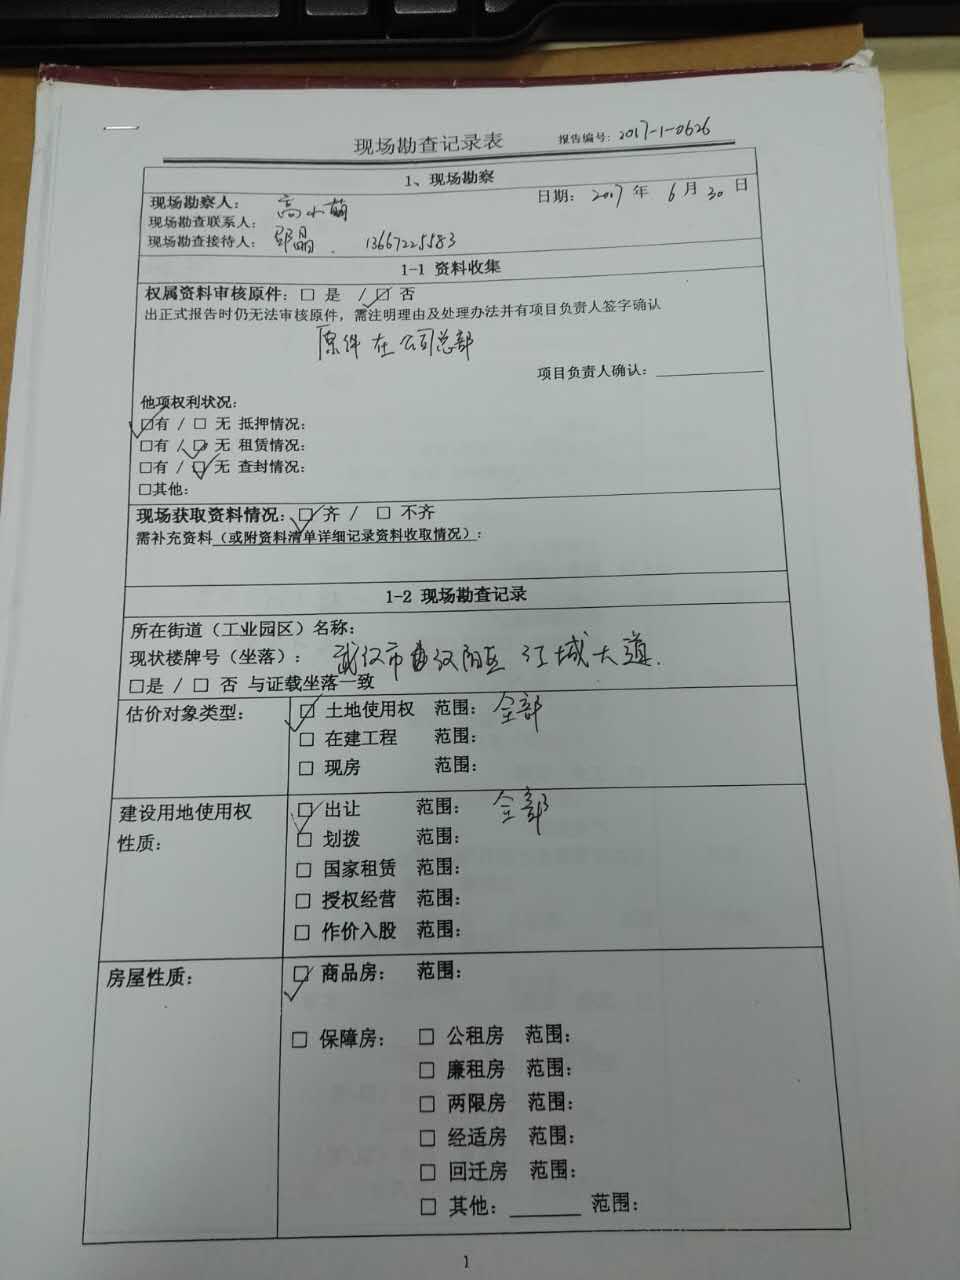 现场勘查记录表 报告编号: 2017-1-0626
1、现场勘察
现场勘察人: 高小萌 日期: 2017 年 6 月 30 日
现场勘查联系人:
现场勘查接待人: 邹晶 13667225583
1-1 资料收集
权属资料审核原件: □ 是 / □ 否
出正式报告时仍无法审核原件, 需注明理由及处理办法并有项目负责人签字确认
原件在公司总部
项目负责人确认:
他项权利状况:
□有 / □ 无 抵押情况:
□有 / □ 无 租赁情况:
□有 / □ 无 查封情况:
□其他:
现场获取资料情况: □ 齐 / □ 不齐
需补充资料(或附资料清单详细记录资料收取情况):
1-2 现场勘查记录
所在街道(工业园区)名称:
现状楼牌号(坐落): 武汉市汉阳区 江城大道.
□是 / □ 否 与证载坐落一致
估价对象类型: □ 土地使用权 范围: 全部
□ 在建工程 范围:
□ 现房 范围:
建设用地使用权 □ 出让 范围: 全部
性质: □ 划拨 范围:
□ 国家租赁 范围:
□ 授权经营 范围:
□ 作价入股 范围:
房屋性质: □ 商品房: 范围:
□ 保障房: □ 公租房 范围:
□ 廉租房 范围:
□ 两限房 范围:
□ 经适房 范围:
□ 回迁房 范围:
□ 其他: ______ 范围:
1